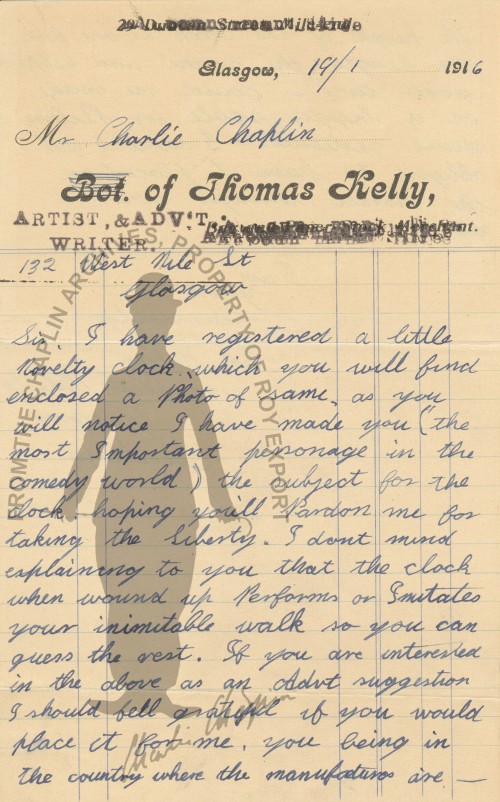 Glasgow, 19/1 1916
Mr Charlie Chaplin
Bot. of Thomas Kelly,
ARTIST, & ADV'T.
WRITER.
132 West Nile St
Glasgow
Sir, I have registered a little
Novelty clock which you will find
enclosed a Photo of same, as you
will notice I have made you (the
most Important personage in the
comedy world) the subject for the
Clock hoping you'll Pardon me for
taking the Liberty. I dont mind
explaining to you that the clock
when wound up Performs or Imitates
your inimitable walk so you can
guess the rest. If you are interested
in the above as an Advt suggestion
I should fell grateful if you would
place it for me, you being in
the country where the manufactures are —
FROM THE CHAPLIN ARCHIVES, PROPERTY OF ROY EXPORT
Charlie Chaplin